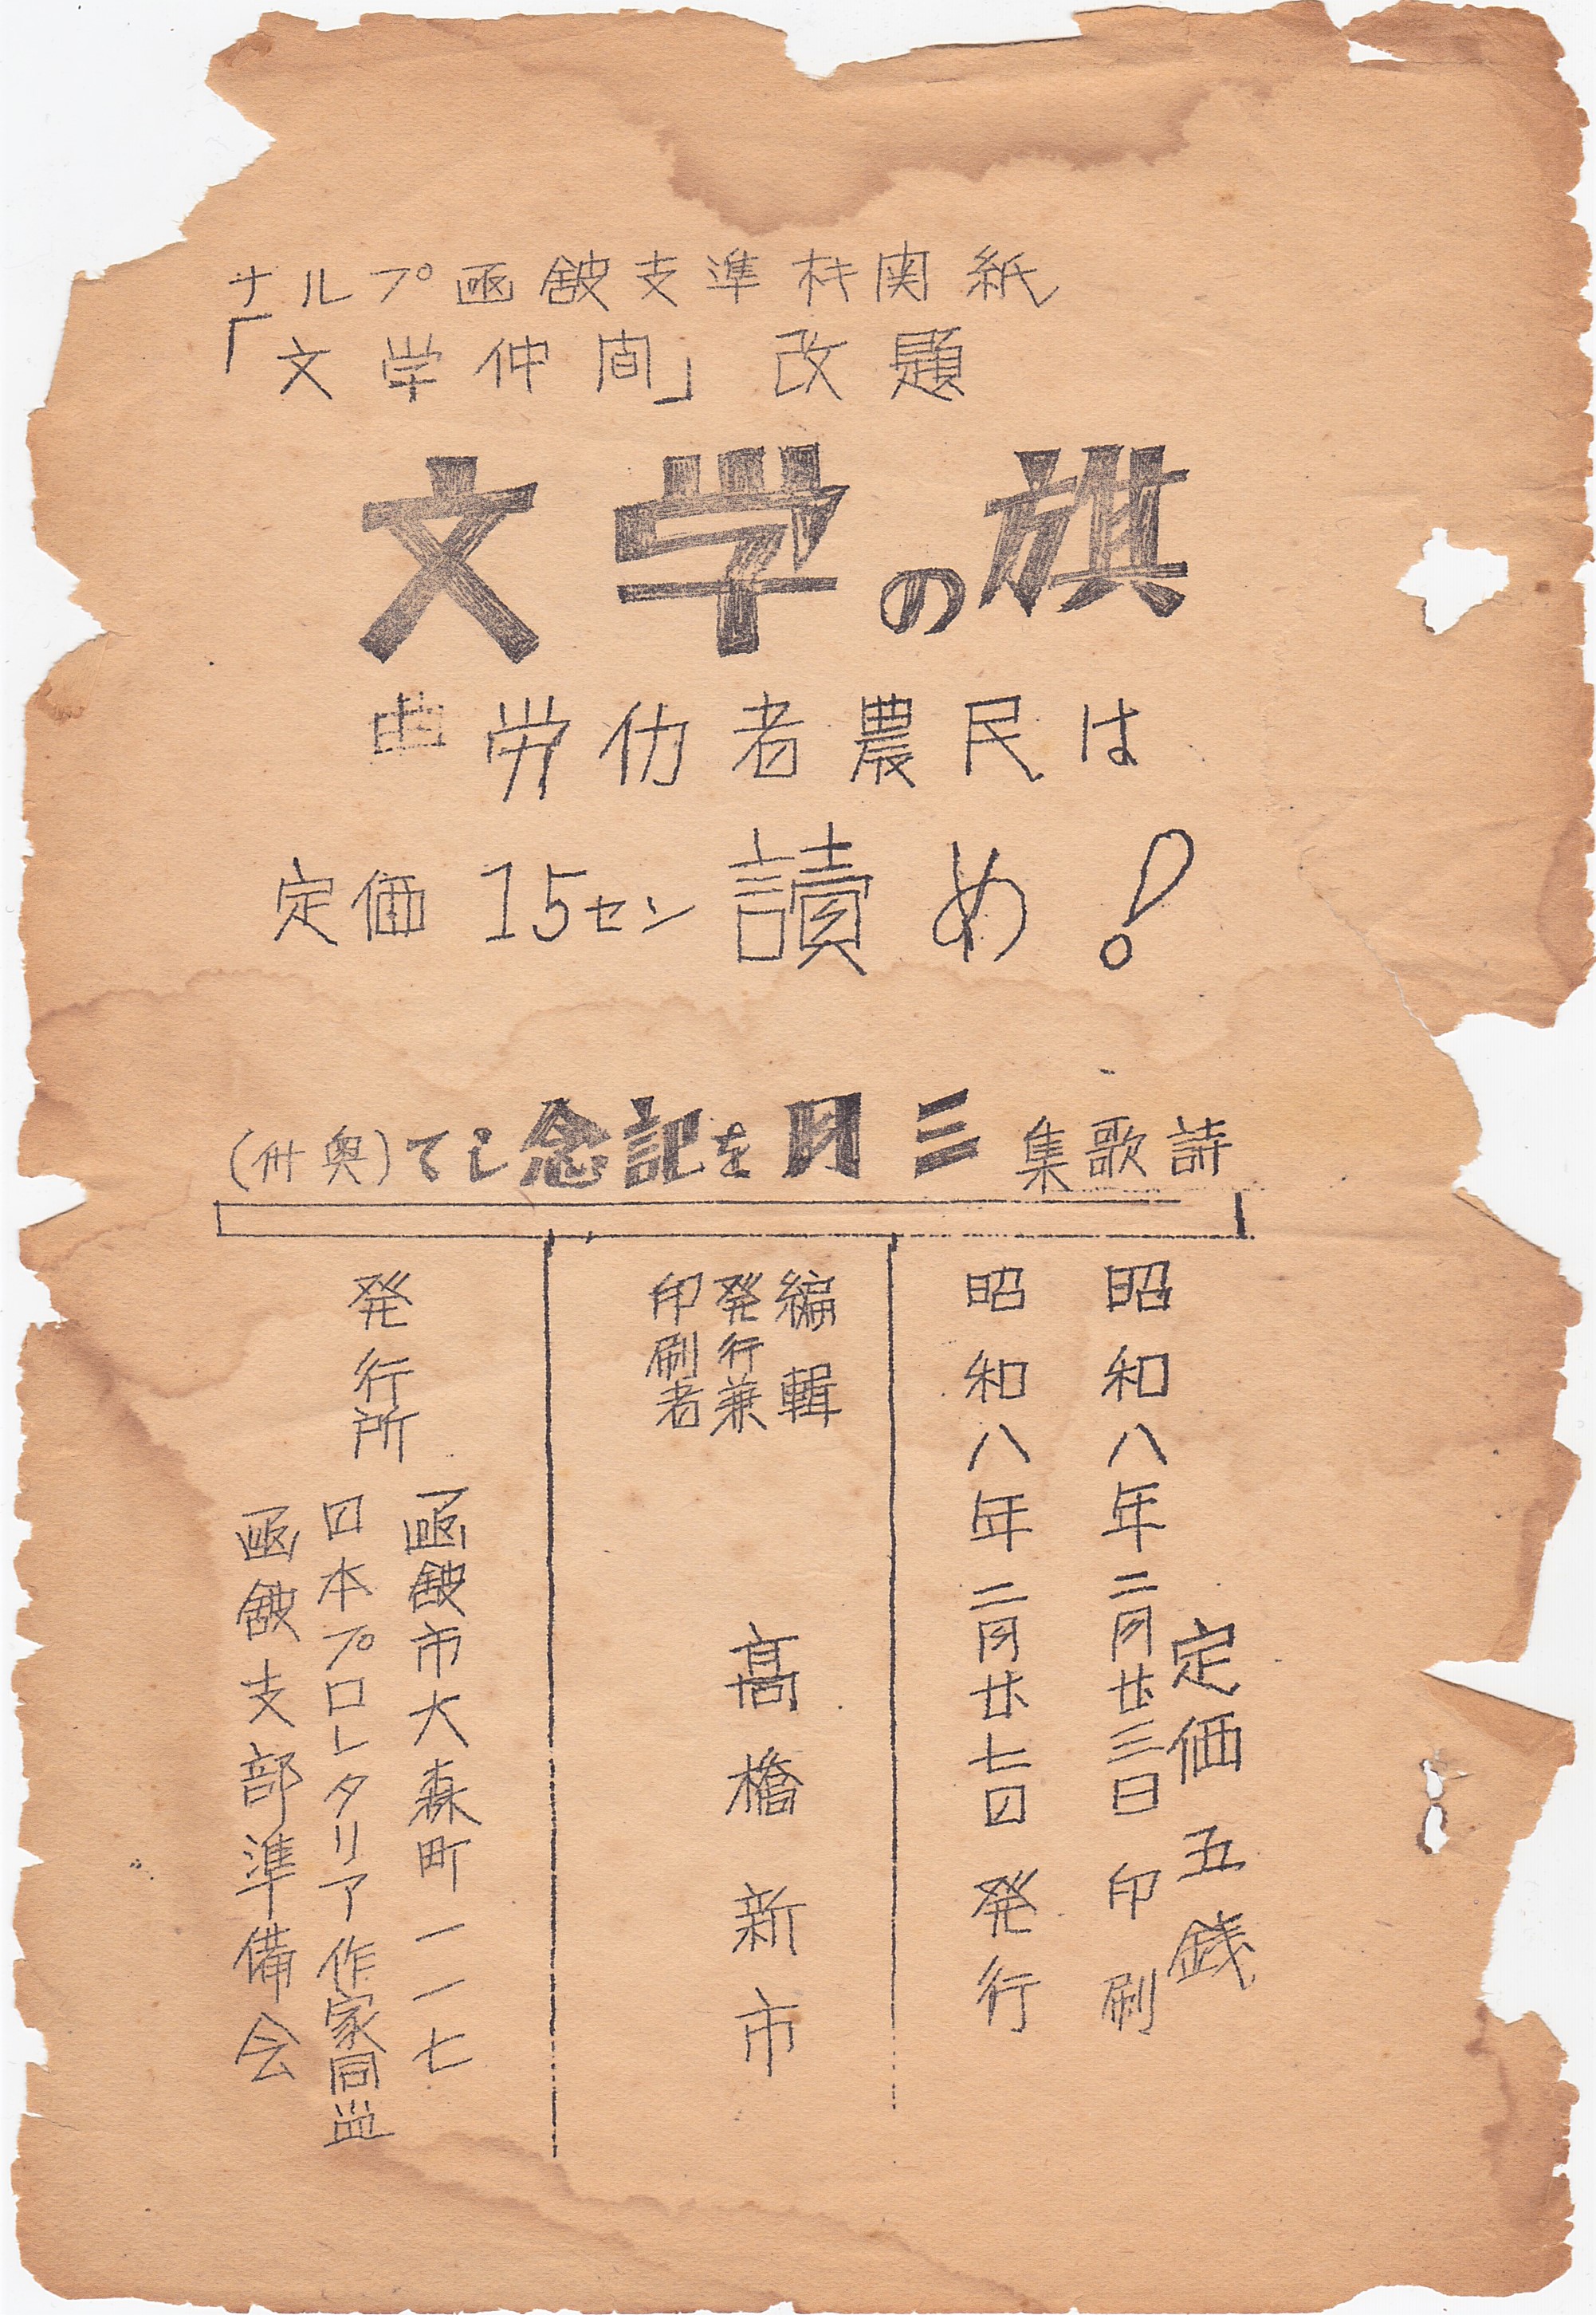 ナルプ函館支準机関紙
「文学仲間」改題
文学の旗
労仂者農民は
定価 15セン 讀め!
詩歌集 三月を記念して(奥附)
定価五銭
昭和八年二月廿三日 印刷
昭和八年二月廿七日 発行
編輯
発行兼
印刷者
髙橋新市
発行所
函館市大森町一一七
日本プロレタリア作家同盟
函館支部準備会